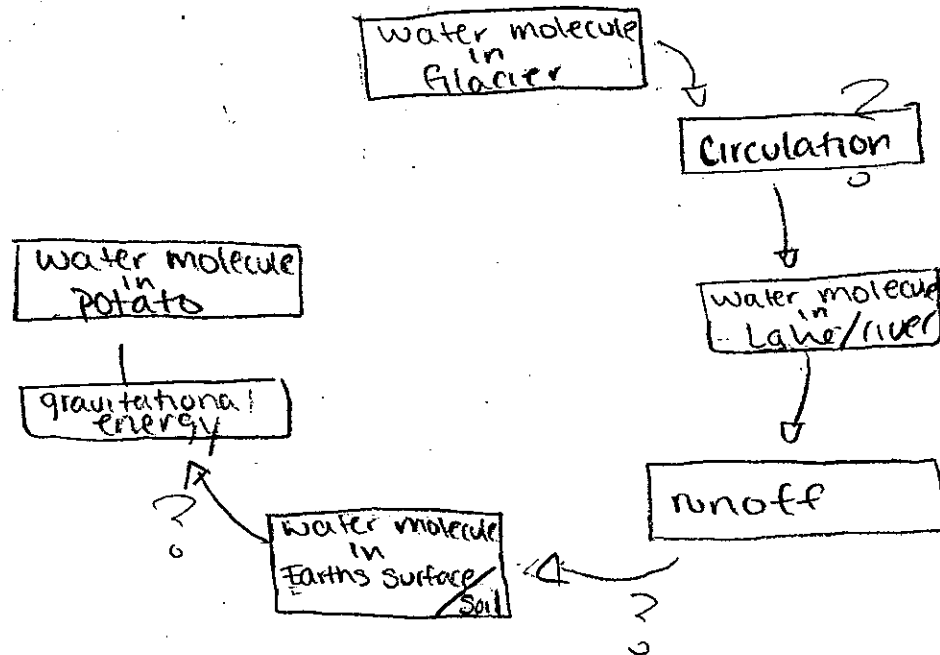 water molecule
in
Glacier
?
Circulation
water molecule
in
Lake/river
runoff
?
water molecule
in
Earths surface
/soil
?
gravitational
energy
water molecule
in
potato